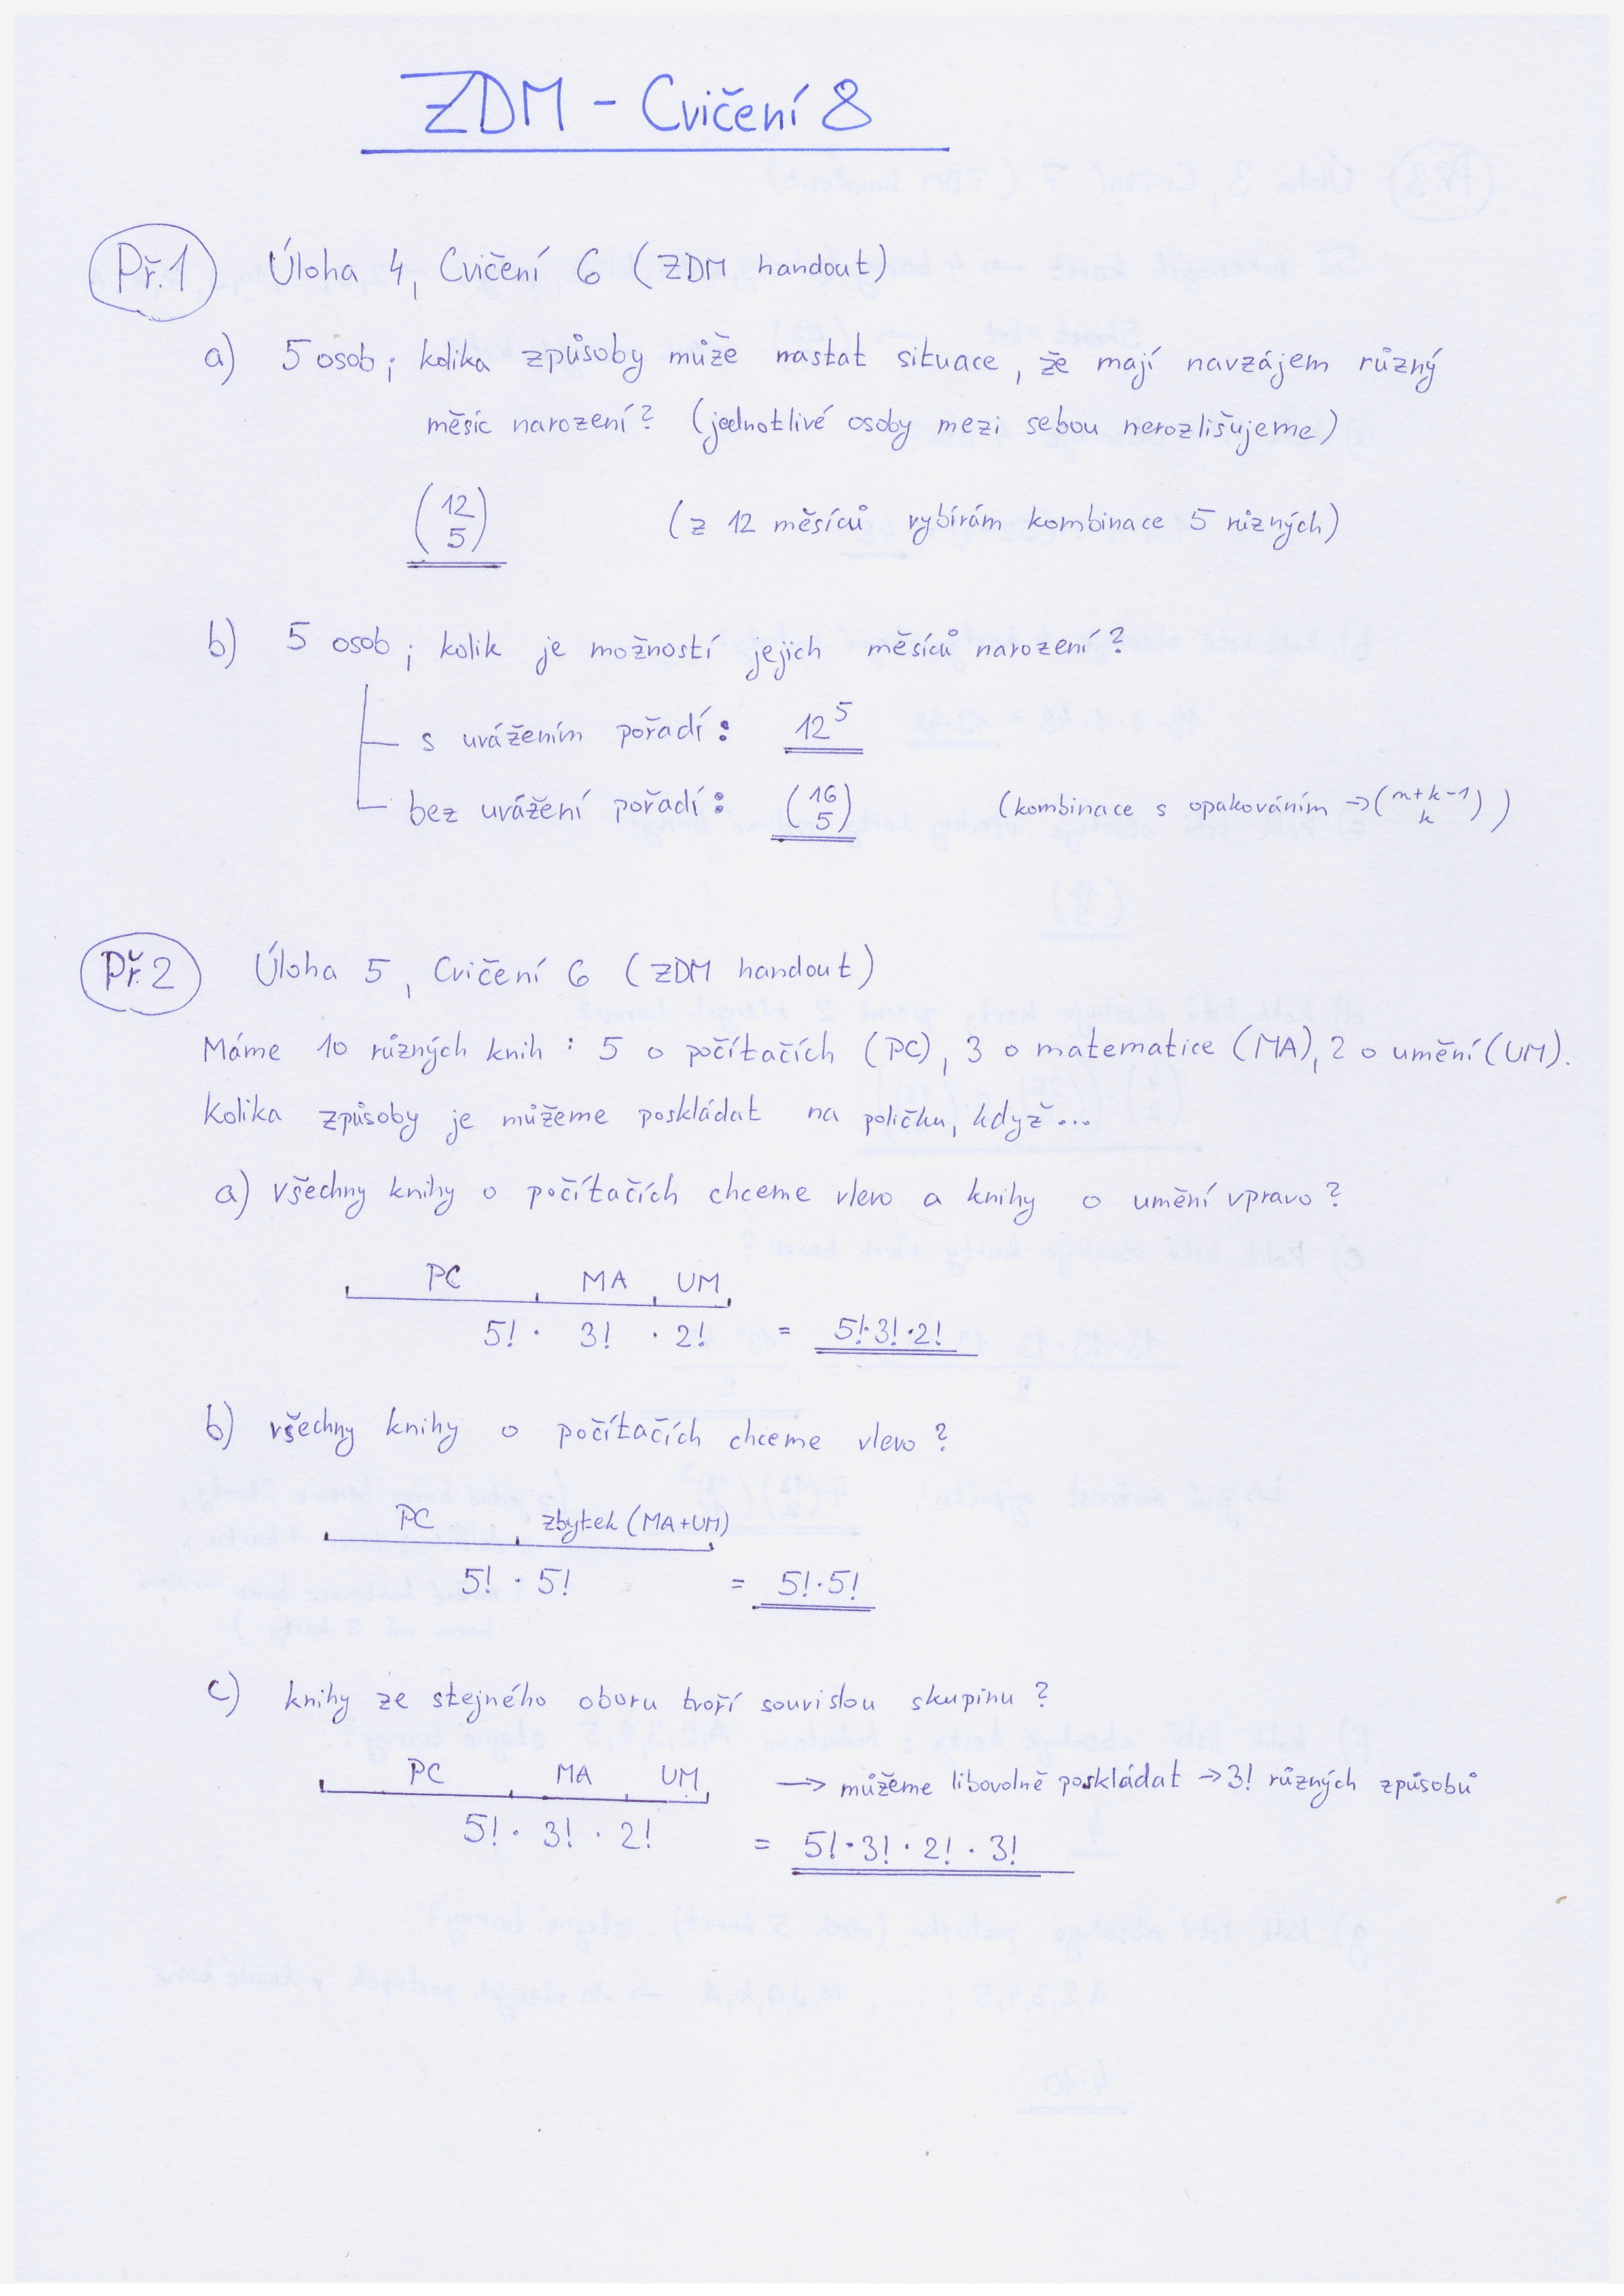 ZDM - Cvičení 8
Př.1 Úloha 4, Cvičení 6 (ZDM handout)
a) 5 osob; kolika způsoby může nastat situace, že mají navzájem různý
měsíc narození? (jednotlivé osoby mezi sebou nerozlišujeme)
(12 5) (z 12 měsíců vybírám kombinace 5 různých)
b) 5 osob; kolik je možností jejich měsíců narození?
s uvážením pořadí: 12^5
bez uvážení pořadí: (16 5) (kombinace s opakováním → (n+k-1 k))
Př.2 Úloha 5, Cvičení 6 (ZDM handout)
Máme 10 různých knih: 5 o počítačích (PC), 3 o matematice (MA), 2 o umění (UM).
Kolika způsoby je můžeme poskládat na poličku, když...
a) všechny knihy o počítačích chceme vlevo a knihy o umění vpravo?
PC MA UM
5! · 3! · 2! = 5!·3!·2!
b) všechny knihy o počítačích chceme vlevo?
PC zbytek (MA+UM)
5! · 5! = 5!·5!
c) knihy ze stejného oboru tvoří souvislou skupinu?
PC MA UM → můžeme libovolně poskládat → 3! různých způsobů
5! · 3! · 2! = 5!·3!·2!·3!